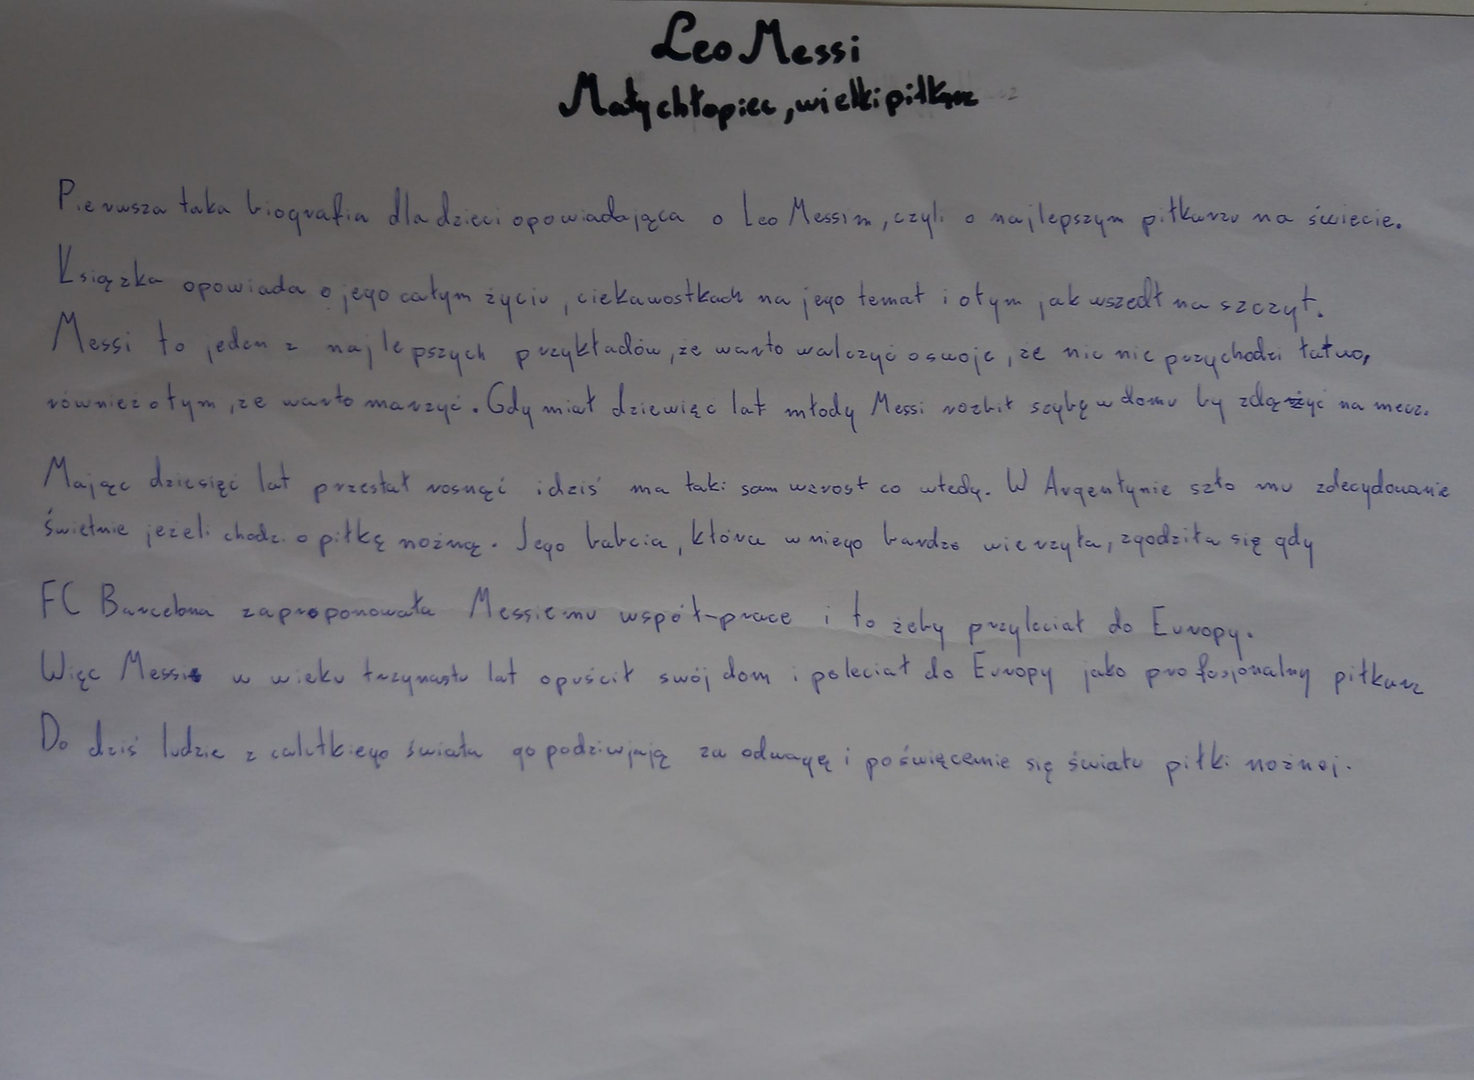 Leo Messi
Mały chłopiec, wielki piłkarz
Pierwsza taka biografia dla dzieci opowiadająca o Leo Messim, czyli o najlepszym piłkarzu na świecie.
Książka opowiada o jego całym życiu, ciekawostkach na jego temat i o tym jak wszedł na szczyt.
Messi to jeden z najlepszych przykładów, że warto walczyć o swoje, że nic nie przychodzi łatwo,
również o tym, że warto marzyć. Gdy miał dziewięć lat młody Messi rozbił szybę w domu by zdążyć na mecz.
Mając dziesięć lat przestał rosnąć i dziś ma taki sam wzrost co wtedy. W Argentynie szło mu zdecydowanie
świetnie jeżeli chodzi o piłkę nożną. Jego babcia, która w niego bardzo wierzyła, zgodziła się gdy
FC Barcelona zaproponowała Messiemu współ-prace i to żeby przyleciał do Europy.
Więc Messi w wieku trzynastu lat opuścił swój dom i poleciał do Europy jako profesjonalny piłkarz
Do dziś ludzie z calutkiego świata go podziwjają za odwagę i poświęcenie się światu piłki nożnej.